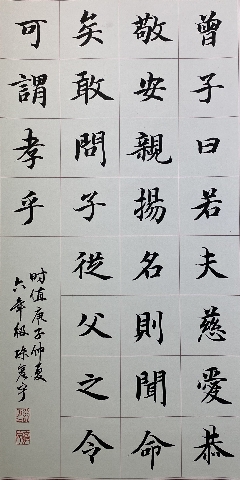 曾子曰若夫慈愛恭
敬安親揚名則聞命
矣敢問子從父之令
可謂孝乎
时值庚子仲夏
六年級